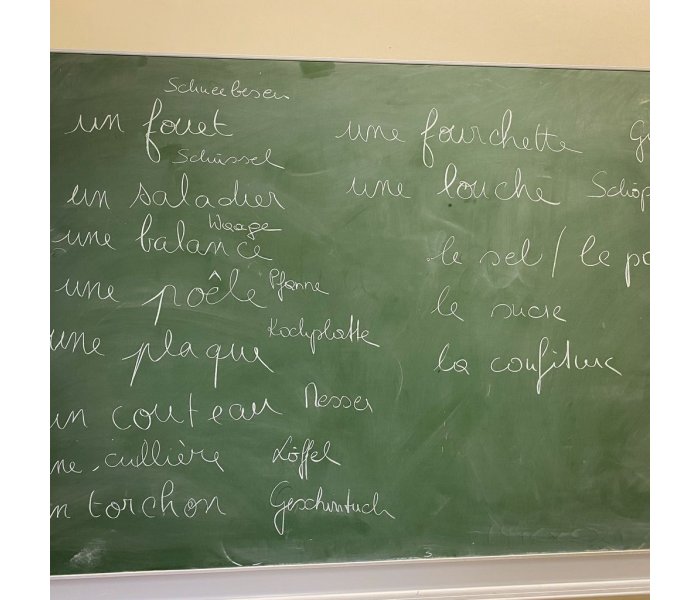 Schneebesen
un fouet
Schüssel
un saladier
Waage
une balance
une poêle Pfanne
Kochplatte
une plaque
un couteau Messer
ne cuillière Löffel
n torchon Geschirrtuch
une fourchette G
une louche Schöp
le sel / le po
le sucre
la confiture